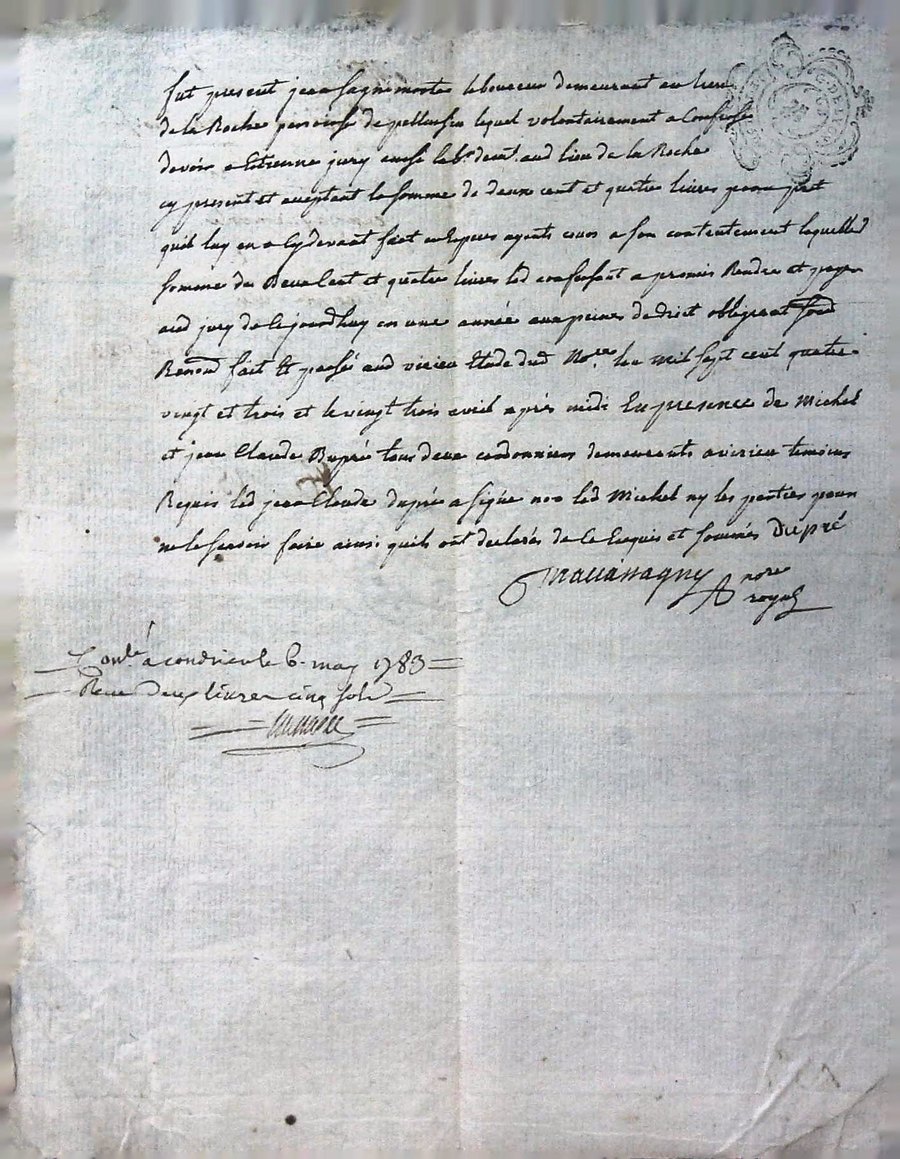 fut present jean Gagnemorte laboureur demeurant au lieu
de la Roche paroisse de pellussin lequel volontairement a Confessé
devoir a Etienne jury aussi lab.r demt. aud lieu de la Roche
cy present et aceptant la somme de deux cent et quatre livres pour pret
quil luy en a Cydevant fait en Especes ayants cours a son contentement laquelle
somme de Deux Cent et quatre livres led confessant a promis Rendre et payer
aud jury de Cejourdhuy en une année aux peines de droit obligeant soud
Renond fait Et passé aud virieu Etude dud Nore. lan mil sept cent quatre
vingt et trois et le vingt trois avril après midi En presence de Michel
et jean Claude Dupré tous deux cordonniers demeurants a virieu temoins
Requis led jean Claude dupré a signé non led Michel ny les parties pour
ne le scavoir faire ainsi quils ont declarés de Ce Enquis et sommés Dupré
nore
royal
Conlé a condrieu le 6. may 1783
Reçu Deux livres cinq sols